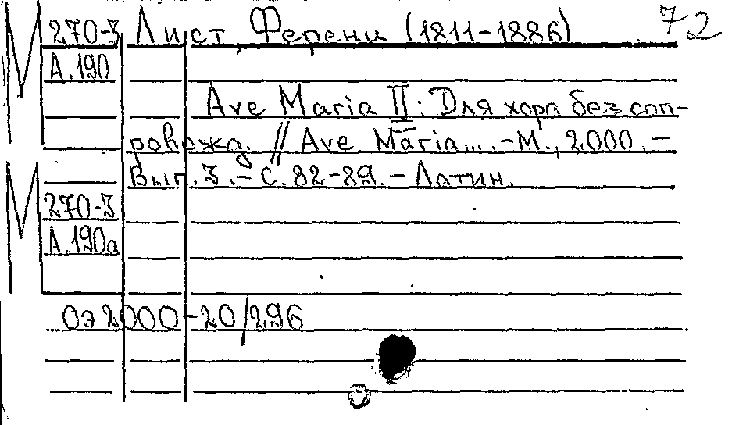 М 270-3 Лист, Ференц (1811-1886) 72
А.190
Ave Maria II: Для хора без соп-
ровожд. // Ave Maria... -М., 2000. -
Вып. 3. - С. 82-89. - Латин.
М 270-3
А.190а
Оэ 2000-20/296